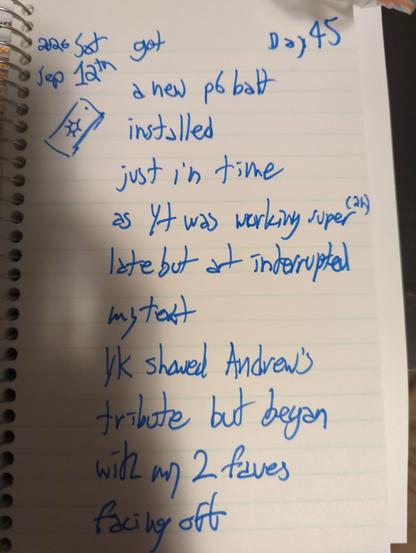 2026 Sat got Day 45
Sep 12th
a new p6 batt
installed
just in time
as YT was working super (2h)
late but at interrupted
my text
YK showed Andrew's
tribute but began
with my 2 faves
facing off